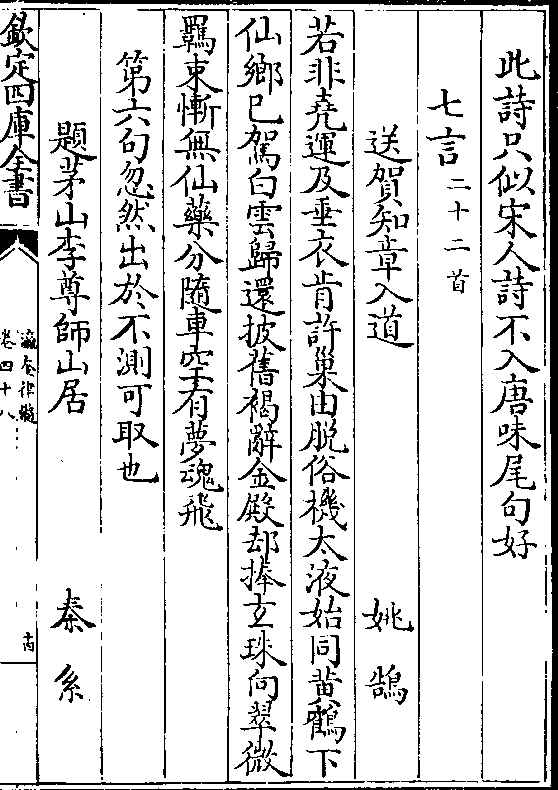 此詩只似宋人詩不入唐味尾句好
七言二十二首
送賀知章入道　姚鵠
若非堯運及垂衣肯許巢由脱俗機太液始同黄鶴下
仙鄉已駕白雲歸還披舊褐辭金殿却捧玄珠向翠微
羈束慚無仙藥分隨車空有夢魂飛
第六句忽然出於不測可取也
題茅山李尊師山居　秦系
欽定四庫全書
瀛奎律髓
卷四十八